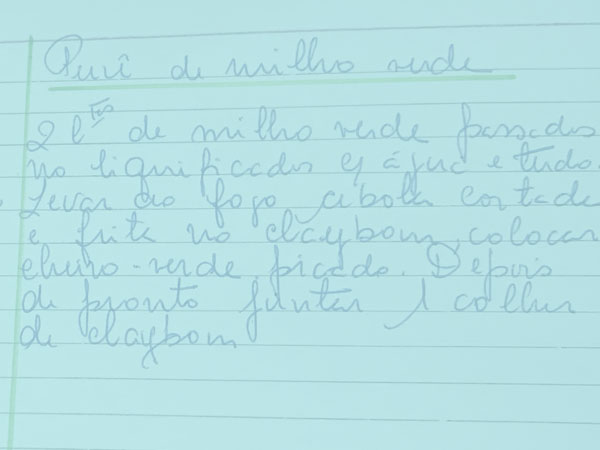 Purê de milho verde
2 l tas de milho verde passados
no liquificados c/ água e tudo.
Levar ao fogo cebola cortada
e frita no claybom, colocar
cheiro-verde picado. Depois
de pronto juntar 1 colher
de claybom